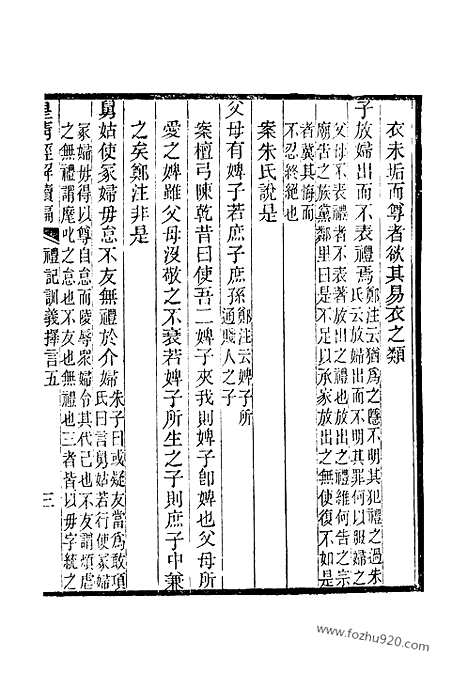 衣未垢而尊者欲其易衣之類
子放婦出而不表禮焉鄭注云猶爲之隱不明其犯禮之過朱
氏云放婦出而不明其罪何以服婦之
父母不表禮者不表著放出之禮也放出之禮維何告之宗
廟告之族黨鄰里曰是不足以承家放出之無使復不如是
者冀其悔而
不忍終絕也
案朱氏說是
父母有婢子若庶子庶孫鄭注云婢子所
通賤人之子
案檀弓陳乾昔曰使吾二婢子夾我則婢子卽婢也父母所
愛之婢雖父母沒敬之不衰若婢子所生之子則庶子中兼
之矣鄭注非是
舅姑使冢婦毋怠不友無禮於介婦朱子曰或疑友當爲敢項
氏曰言舅姑若行使冢婦
冢婦毋得以尊自怠而陵辱眾婦令其代己也不友謂煩虐
之無禮謂麾叱之怠也不友也無禮也三者皆以毋字統之
皇清經解續編
禮記訓義擇言五
三
www.fozhu920.com